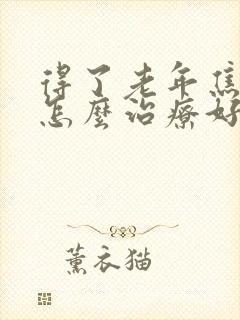 得了老年焦
怎麼治療好
薰衣猫